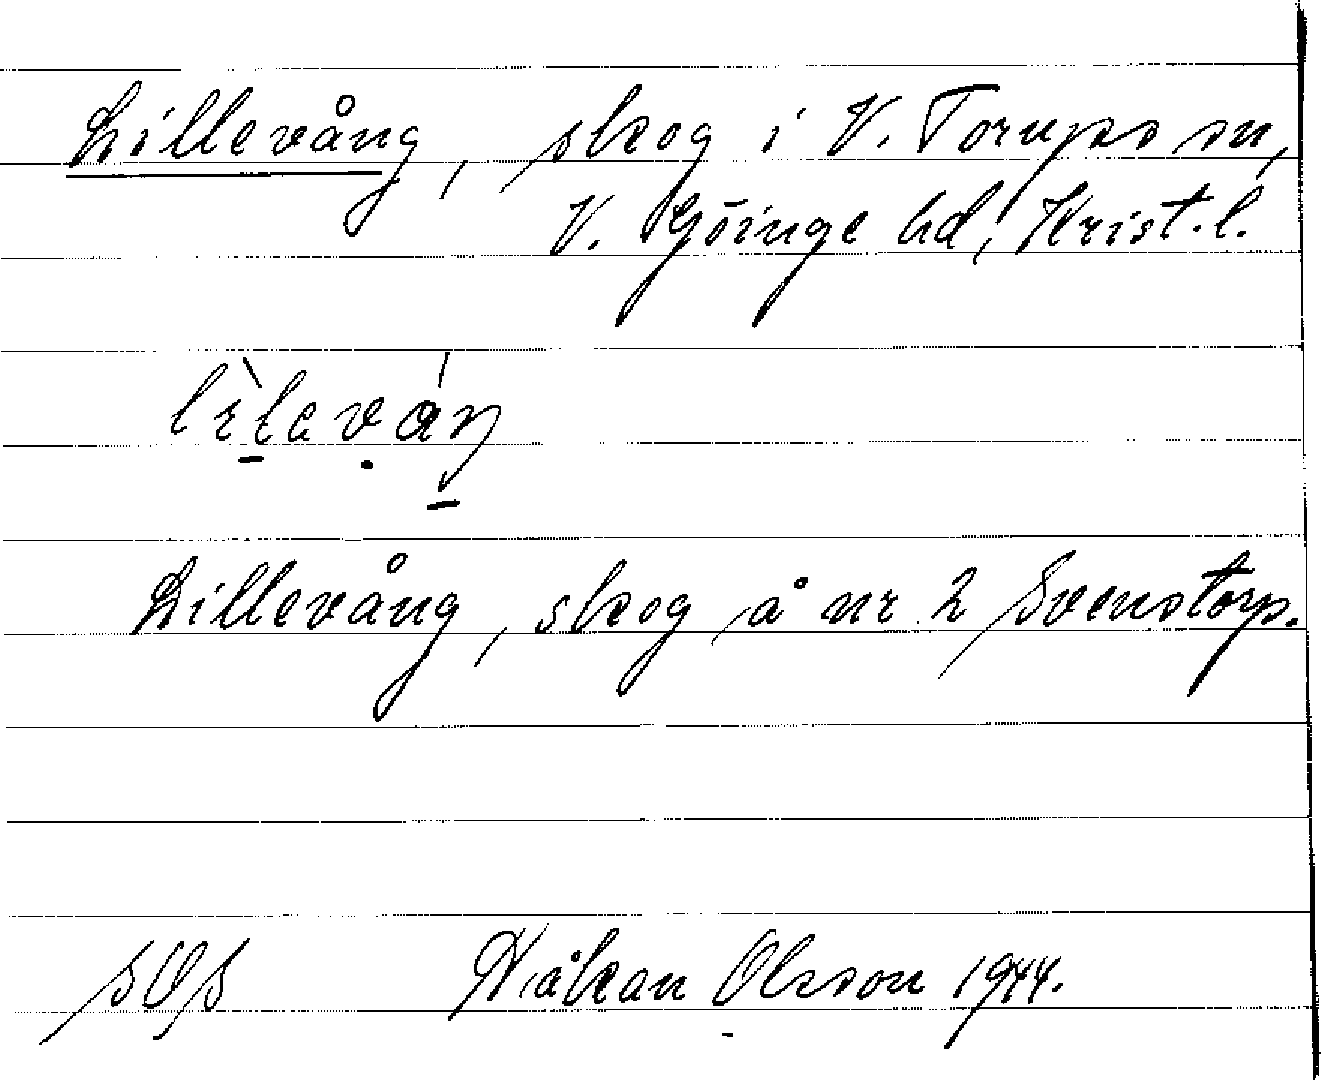 Lillevång, skog i V. Torups sn,
V. Göinge hd, Krist. l.
Lillevång, skog å nr 2 Svenstorp.
Håkan Olsson 1944.